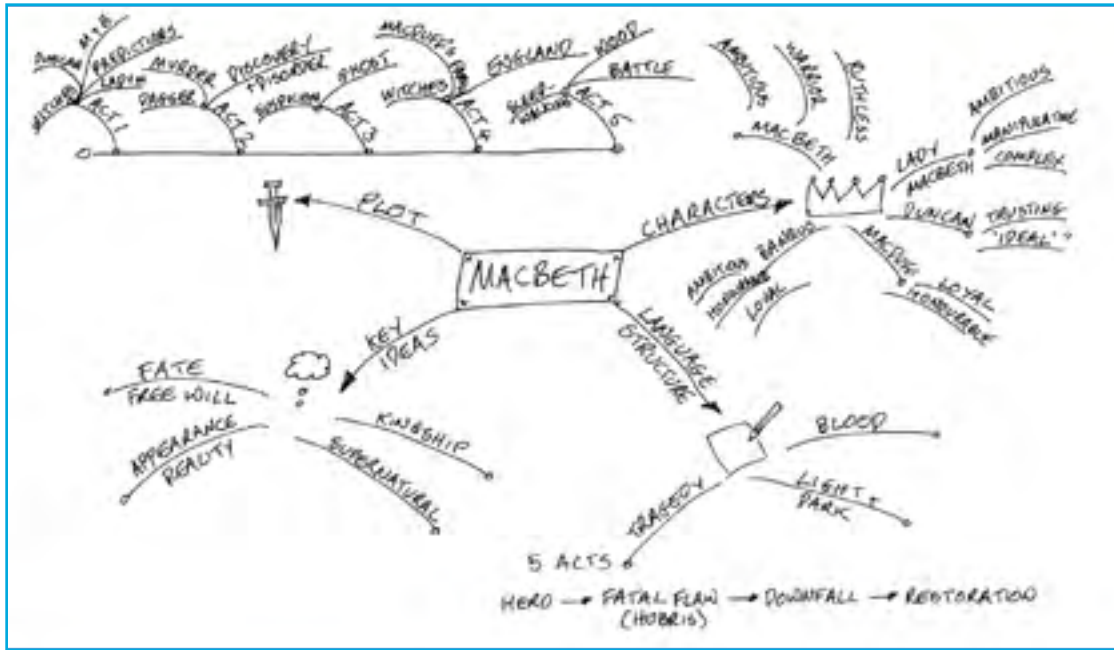 WITCHES
DUNCAN
M + B
PREDICTIONS
LADY M
ACT 1
DAGGER
MURDER
DISCOVERY
+ DISORDER
ACT 2
SUSPICION
GHOST
ACT 3
WITCHES
MACDUFF'S
ENGLAND
ACT 4
SLEEP-
WALKING
WOOD
BATTLE
ACT 5
PLOT
MACBETH
CHARACTERS
MACBETH
AMBITIOUS
WARRIOR
RUTHLESS
LADY
MACBETH
AMBITIOUS
MANIPULATIVE
COMPLEX
DUNCAN
TRUSTING
"IDEAL"
MACDUFF
LOYAL
HONOURABLE
BANQUO
AMBITIOUS
LOYAL
KEY
IDEAS
FATE
FREE WILL
APPEARANCE
REALITY
KINGSHIP
SUPERNATURAL
LANGUAGE
STRUCTURE
BLOOD
LIGHT +
DARK
TRAGEDY
5 ACTS
HERO → FATAL FLAW → DOWNFALL → RESTORATION
(HUBRIS)